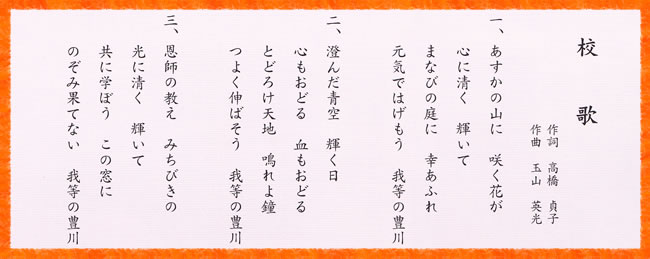 校 歌
作詞 高橋 貞子
作曲 玉山 英光
一、あすかの山に 咲く花が
心に清く 輝いて
まなびの庭に 幸あふれ
元気ではげもう 我等の豊川
二、澄んだ青空 輝く日
心もおどる 血もおどる
とどろけ天地 鳴れよ鐘
つよく伸ばそう 我等の豊川
三、恩師の教え みちびきの
光に清く 輝いて
共に学ぼう この窓に
のぞみ果てない 我等の豊川